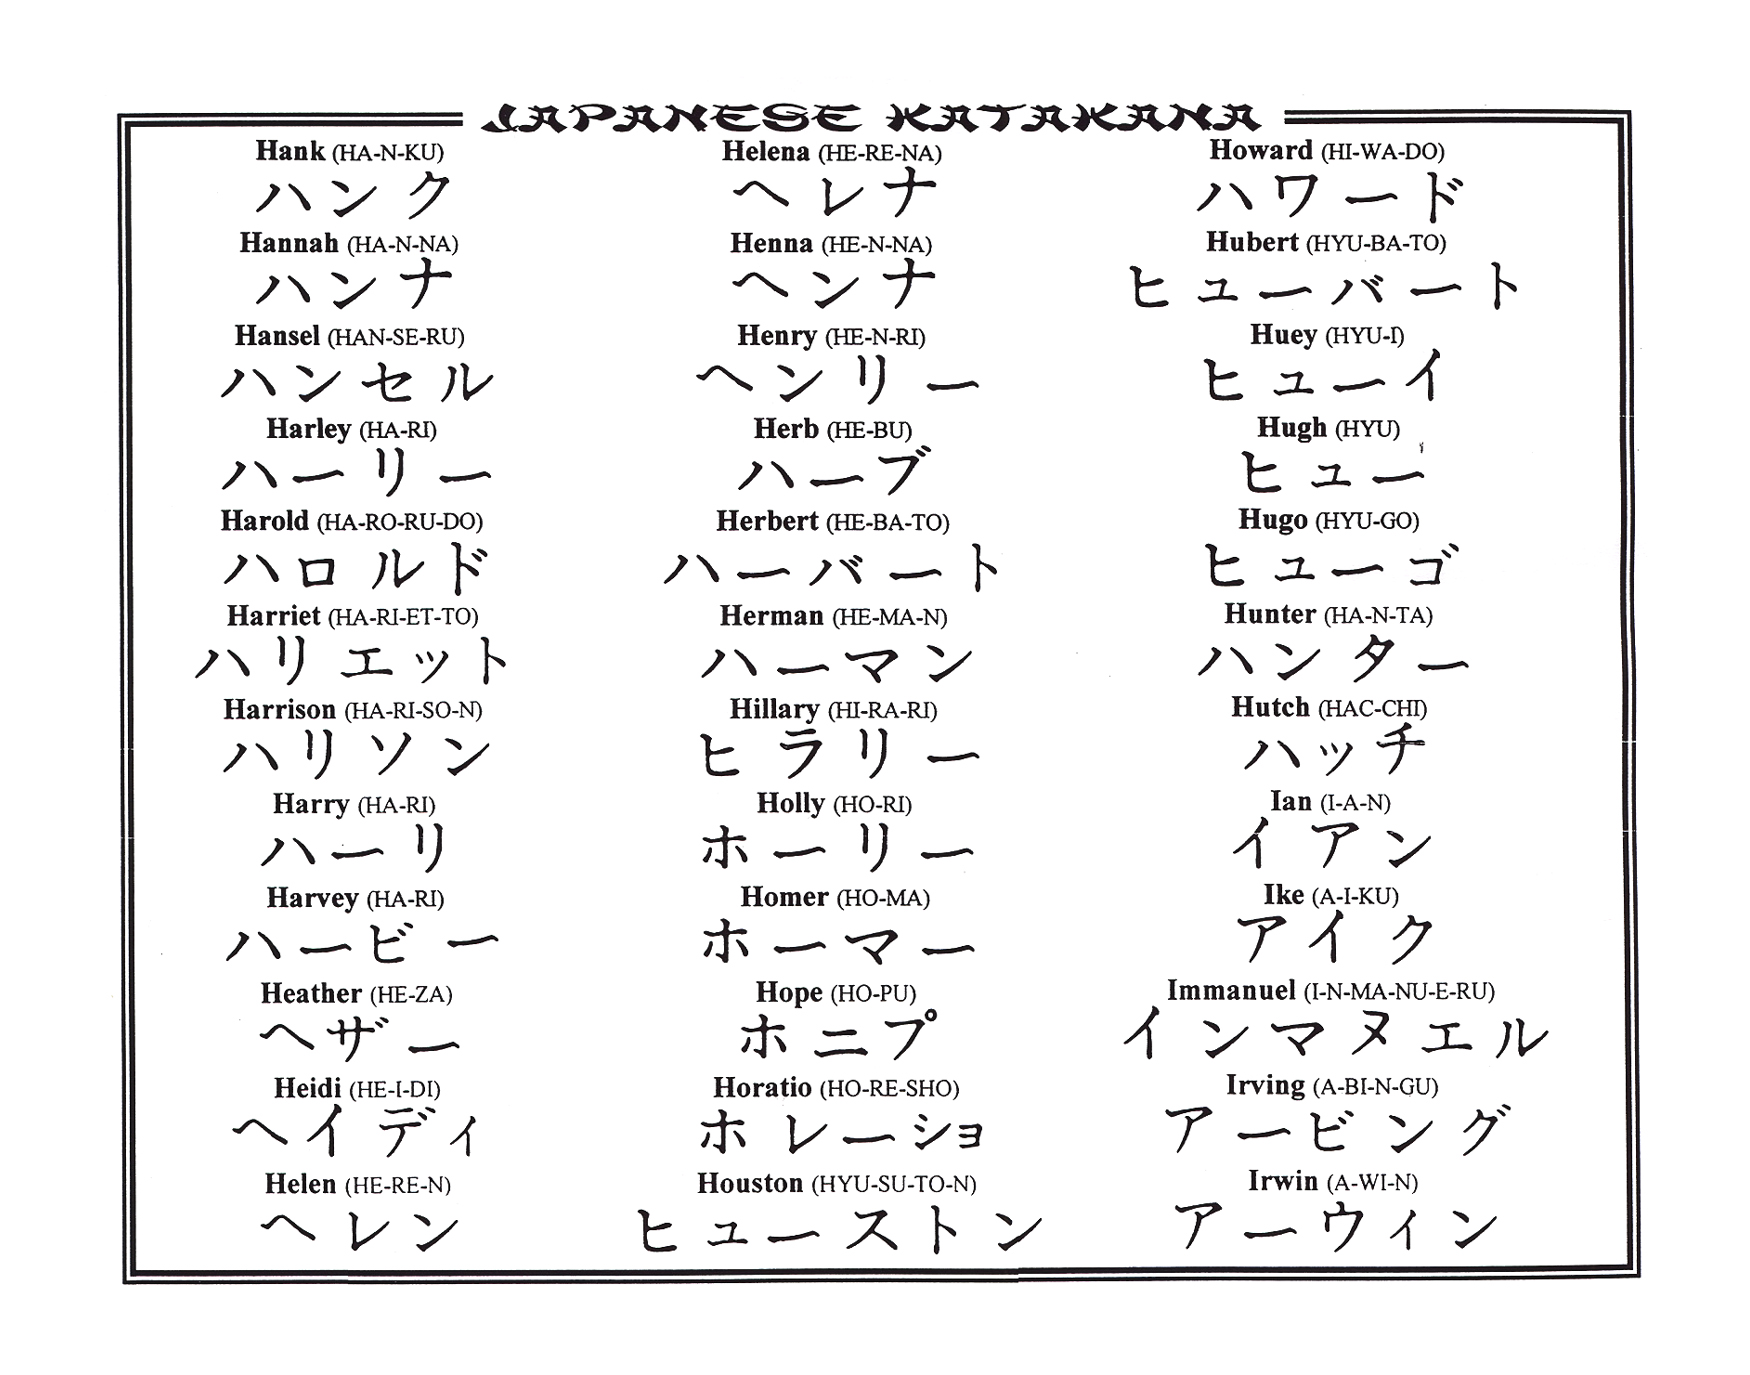 JAPANESE KATAKANA
Hank (HA-N-KU)
ハンク
Hannah (HA-N-NA)
ハンナ
Hansel (HAN-SE-RU)
ハンセル
Harley (HA-RI)
ハーリー
Harold (HA-RO-RU-DO)
ハロルド
Harriet (HA-RI-ET-TO)
ハリエット
Harrison (HA-RI-SO-N)
ハリソン
Harry (HA-RI)
ハーリ
Harvey (HA-RI)
ハービー
Heather (HE-ZA)
ヘザー
Heidi (HE-I-DI)
ヘイディ
Helen (HE-RE-N)
ヘレン
Helena (HE-RE-NA)
ヘレナ
Henna (HE-N-NA)
ヘンナ
Henry (HE-N-RI)
ヘンリー
Herb (HE-BU)
ハーブ
Herbert (HE-BA-TO)
ハーバート
Herman (HE-MA-N)
ハーマン
Hillary (HI-RA-RI)
ヒラリー
Holly (HO-RI)
ホーリー
Homer (HO-MA)
ホーマー
Hope (HO-PU)
ホニプ
Horatio (HO-RE-SHO)
ホレーショ
Houston (HYU-SU-TO-N)
ヒューストン
Howard (HI-WA-DO)
ハワード
Hubert (HYU-BA-TO)
ヒューバート
Huey (HYU-I)
ヒューイ
Hugh (HYU)
ヒュー
Hugo (HYU-GO)
ヒューゴ
Hunter (HA-N-TA)
ハンター
Hutch (HAC-CHI)
ハッチ
Ian (I-A-N)
イアン
Ike (A-I-KU)
アイク
Immanuel (I-N-MA-NU-E-RU)
インマヌエル
Irving (A-BI-N-GU)
アービング
Irwin (A-WI-N)
アーウィン